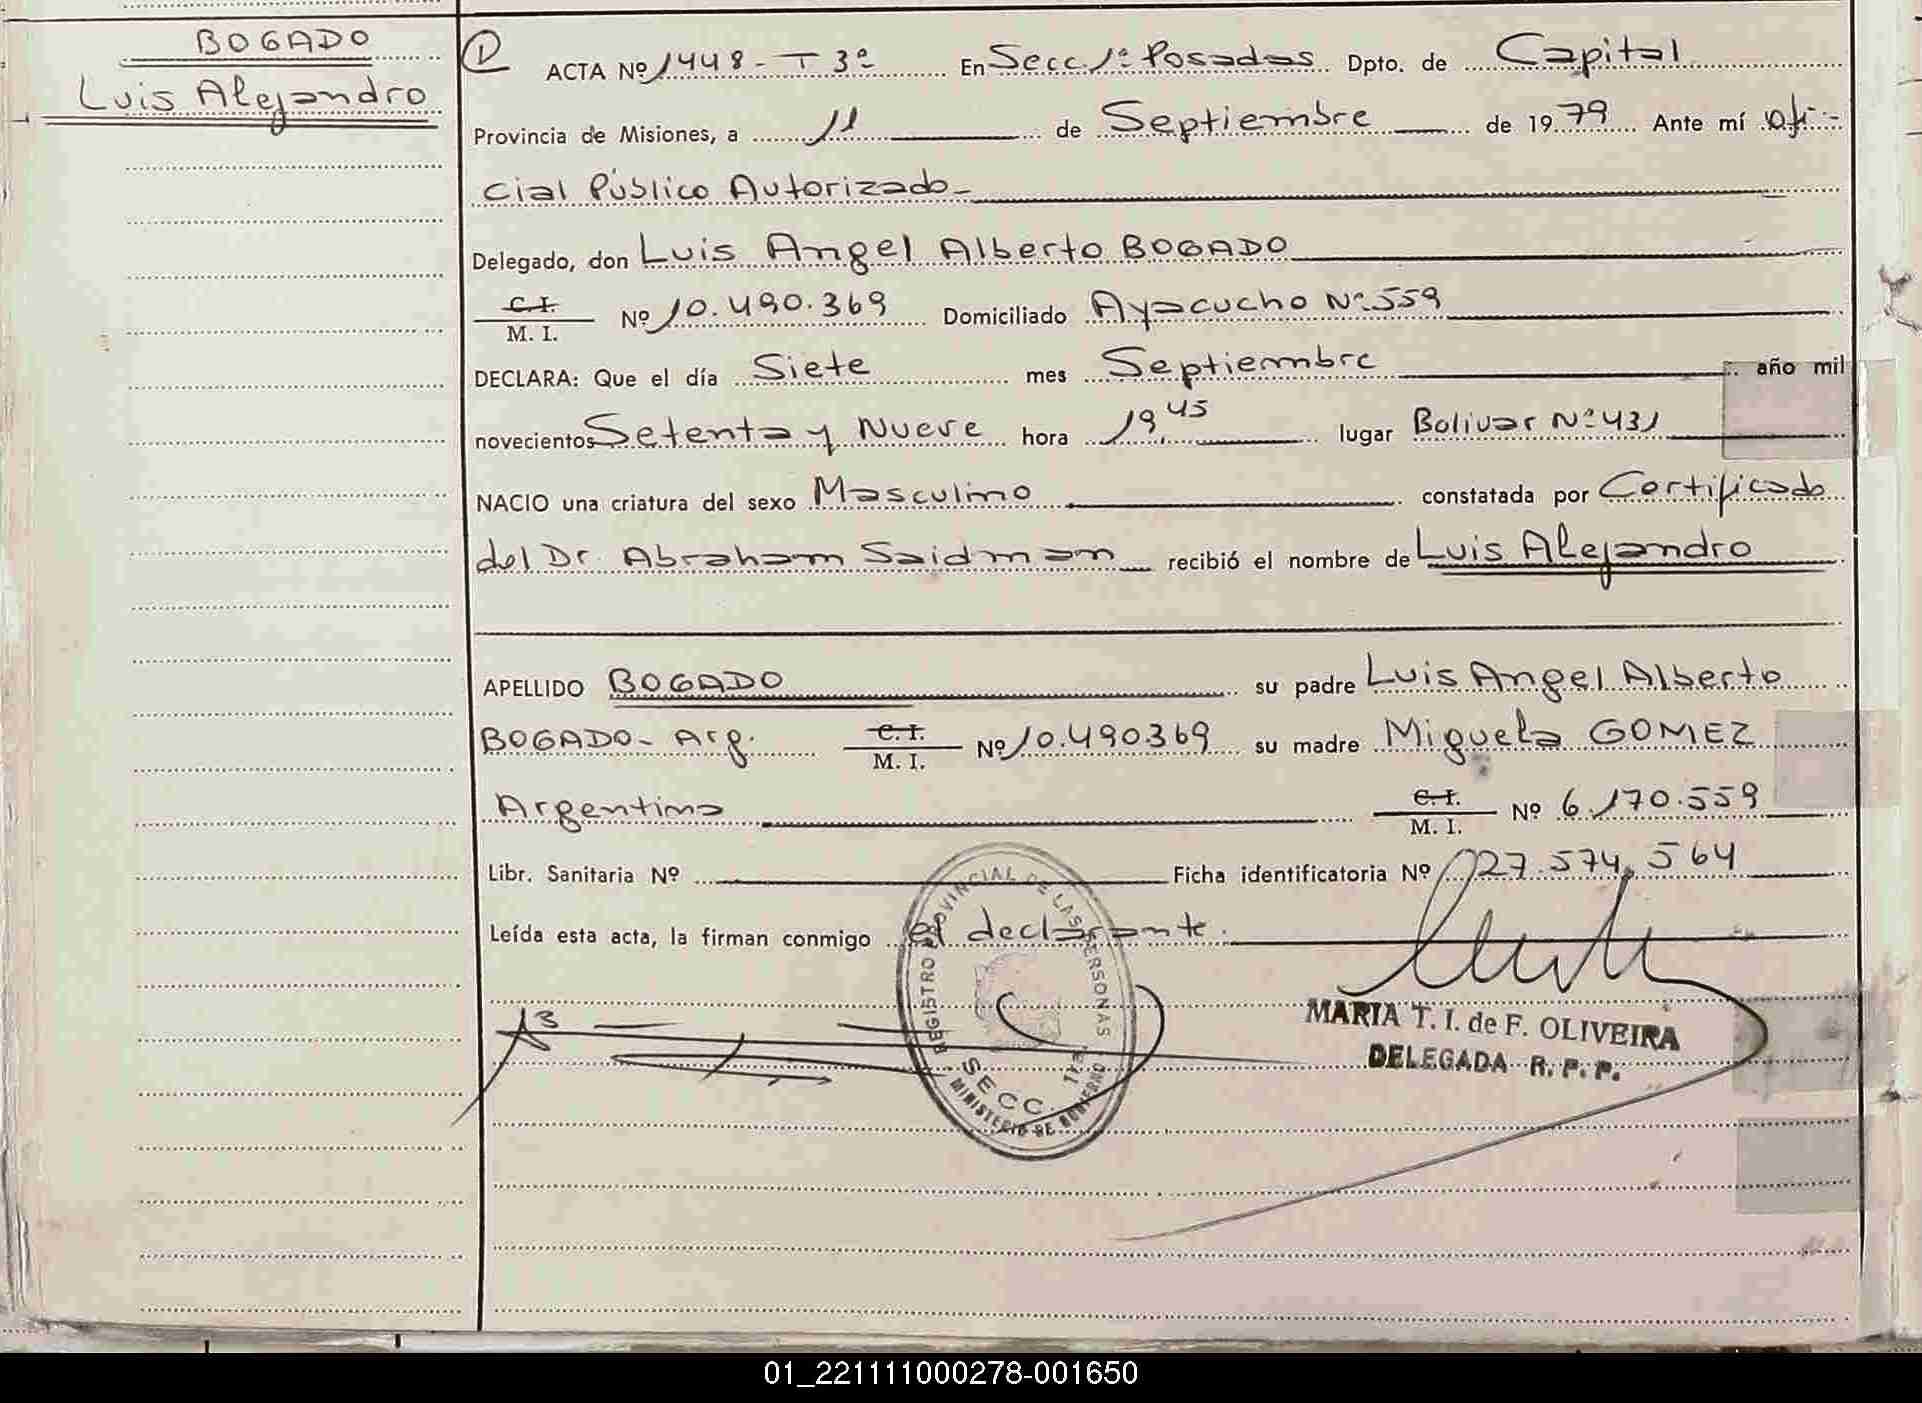 BOGADO
Luis Alejandro
ACTA Nº 1448 - T 3º En Secc 1ª Posadas Dpto. de Capital
Provincia de Misiones, a 11 de Septiembre de 1979 Ante mí Ofi-
cial Público Autorizado
Delegado, don Luis Angel Alberto BOGADO
C.I.
M. I. Nº 10.490.369 Domiciliado Ayacucho Nº 559
DECLARA: Que el día Siete mes Septiembre año mil
novecientos Setenta y Nueve hora 19,45 lugar Bolivar Nº 431
NACIO una criatura del sexo Masculino constatada por Certificado
del Dr. Abraham Saidman recibió el nombre de Luis Alejandro
APELLIDO BOGADO su padre Luis Angel Alberto
BOGADO - Arg. C.I. M. I. Nº 10.490369 su madre Miguela GOMEZ
Argentina C.I. M. I. Nº 6.170.559
Libr. Sanitaria Nº Ficha identificatoria Nº 27.574.564
Leída esta acta, la firman conmigo el declarante.
REGISTRO PROVINCIAL DE LAS PERSONAS
SECC. 1ra.
MINISTERIO DE GOBIERNO
MARIA T. I. de F. OLIVEIRA
DELEGADA R. P. P.
01_221111000278-001650